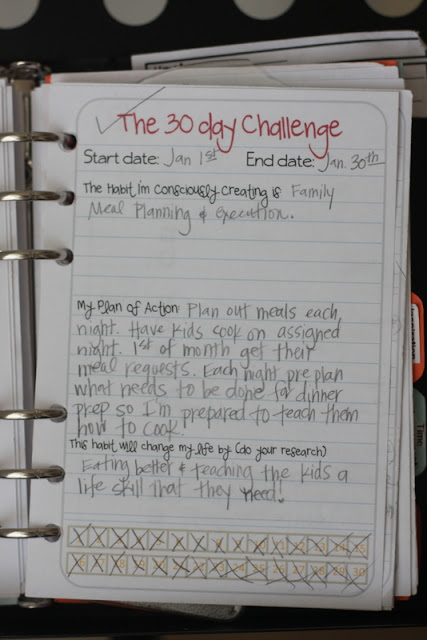 The 30 day Challenge
Start date: Jan 1st End date: Jan. 30th
The Habit im consciously creating is Family
Meal Planning & execution.
My Plan of Action: Plan out meals each
night. Have kids cook on assigned
night. 1st of month get their
meal requests. Each night pre plan
what needs to be done for dinner
prep so I'm prepared to teach them
how to cook.
This habit will change my life by (do your research)
Eating better & teaching the kids a
life skill that they need!
Inspiration
Time